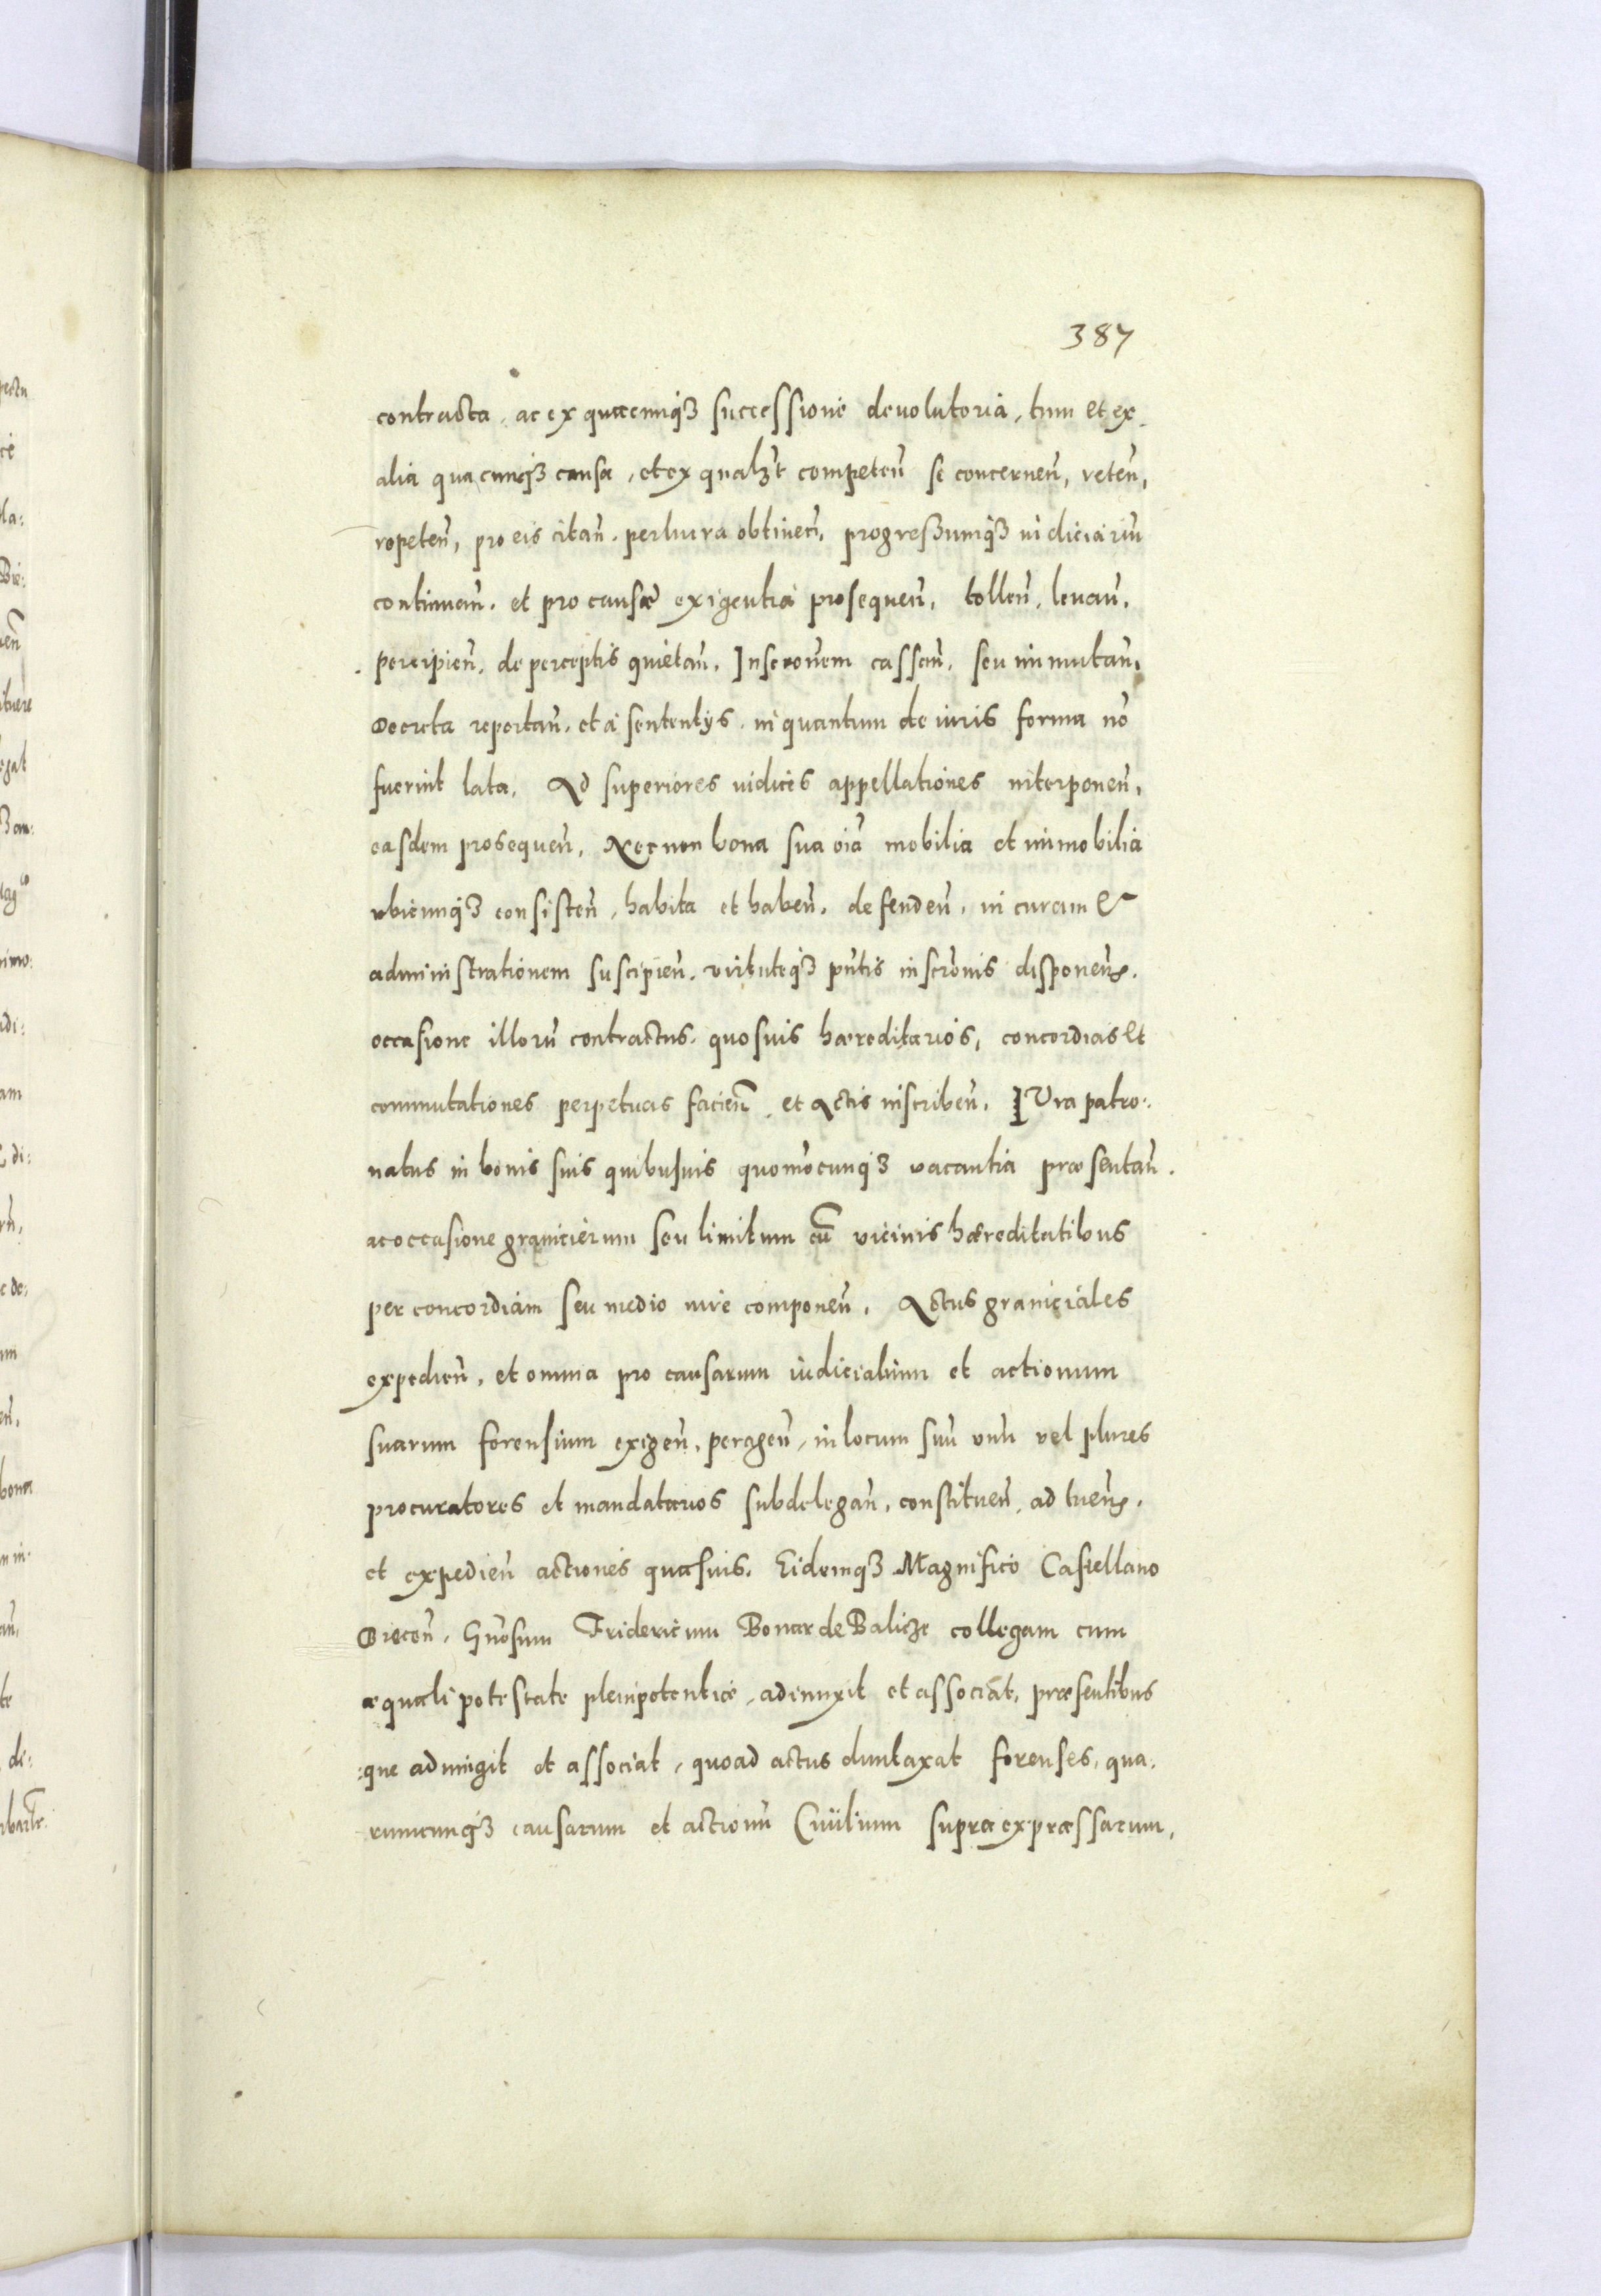 387
contracta, ac ex quacunq3 successione deuolutoria, tum et ex
alia quacunq3 causa, et ex qualr3t competeñ se concerneñ, reteñ,
repeteñ, pro eis citañ. perlucra obtineñ, progressumq3 iudiciariũ
continuañ. et pro causæ exigentia prosequeñ, tolleñ, leuañ,
percipieñ, de perceptis quietañ. Inscrõnem cassañ, seu immutañ,
Decreta reportañ. et a sententijs. in quantum de iuris forma nõ
fuerint lata, Ad superiores iudices appellationes interponeñ,
easdem prosequeñ, Necnon bona sua oĩa mobilia et immobilia
vbicunq3 consisteñ, habita et habeñ. defendeñ, in curam &
administrationem suscipieñ. virtuteq3 pñtis inscrõnis disponeñ.
occasione illorũ contractus. quosuis hæreditarios, concordias et
commutationes perpetuas facieñ, et Actis inscribeñ. IVra patro:
natus in bonis suis quibusuis quomõcunq3 vacantia præsentañ.
ac occasione granicierum seu limitum cũ vicinis hæreditatibus
per concordiam seu medio iure componeñ, Actus graniciales
expedieñ, et omnia pro causarum iudicialium et actionum
suarum forensium exigeñ, perageñ, in locum suũ vnũ vel plures
procuratores et mandatarios subdelegañ, constitueñ, ad tueñ.
et expedieñ actiones quasuis. Eidemq3 Magnifico Castellano
Bieceñ, Gñosum Fridericum Bonar de Balicze collegam cum
æquali potestate plenipotentiæ, adiunxit et associat, præsentibus
:que adiungit et associat, quoad actus duntaxat forenses, qua:
rumcunq3 causarum et actionũ Ciuilium supra expræssarum,